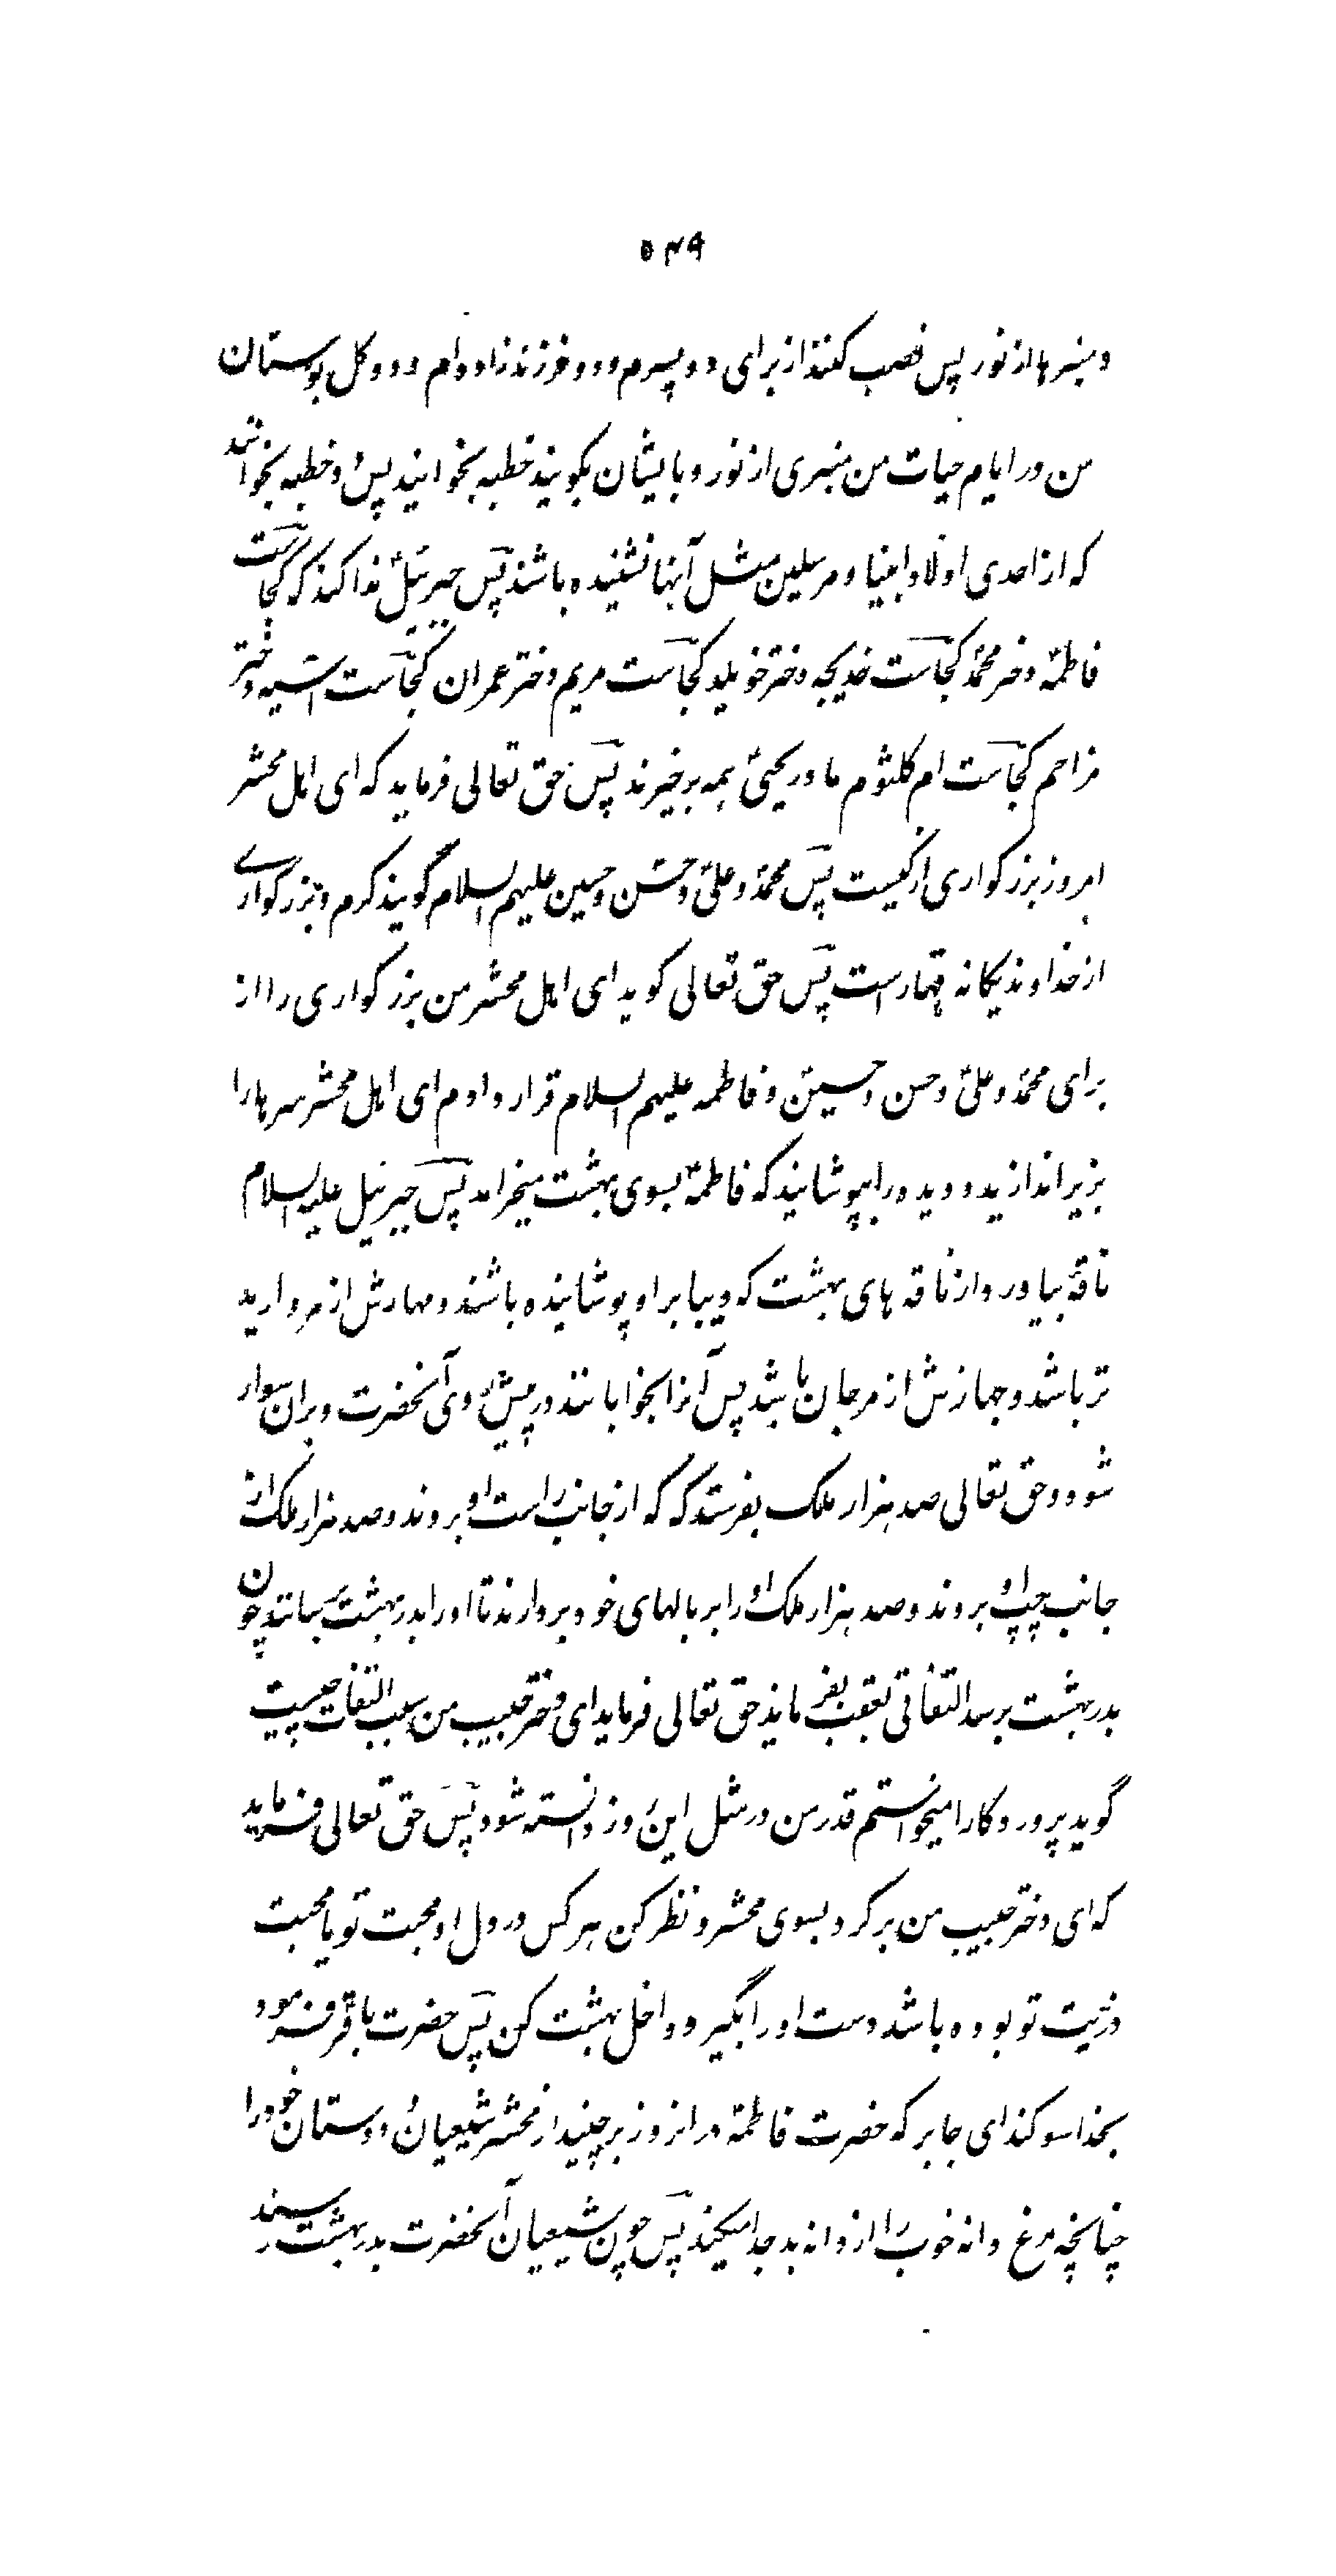 ۵۴۹
و منبرها از نور پس نصب کنند از برای دو پسرم و دو فرزندزاده‌ام و دو گل بوستان
من در ایام حیات من منبری از نور و بایشان بگویند خطبه بخوانید پس دو خطبه بخوانند
که از احدی اولاد انبیا و مرسلین مثل آنها نشنیده باشند پس جبرئیل ندا کند که کجاست
فاطمهٔ دختر محمدؐ کجاست خدیجه دختر خویلد کجاست مریم دختر عمران کجاست آسیه دختر
مزاحم کجاست ام کلثوم مادر یحییٰؑ همه برخیزند پس حق تعالی فرماید که ای اهل محشر
امروز بزرگواری از کیست پس محمدؐ و علیؑ و حسنؑ و حسین علیهم السلام گویند کرم و بزرگواری
از خداوند یگانه قهار است پس حق تعالی گوید ای اهل محشر من بزرگواری را از
برای محمدؐ و علیؑ و حسن و حسینؑ و فاطمه علیهم السلام قرار دادم ای اهل محشر سرها را
بزیر اندازید و دیده را بپوشانید که فاطمهؑ بسوی بهشت میخرامد پس جبرئیل علیه السلام
ناقهٔ بیاورد از ناقه های بهشت که دیبا بر او پوشانیده باشند و مهارش از مروارید
تر باشد و جهازش از مرجان باشد پس آنرا بخواباند در پیش روی آنحضرت و بران سوار
شود و حق تعالی صد هزار ملک بفرستد که که از جانب راست او بروند و صد هزار ملک از
جانب چپ او بروند و صد هزار ملک او را بر بالهای خود بردارند تا او را بدر بهشت برسانند چون
بدر بهشت برسد التفاتی بعقب بفرماید حق تعالی فرماید ای دختر حبیب من سبب التفات چیست
گوید پروردگارا میخواستم قدر من در مثل این روز دانسته شود پس حق تعالی فرماید
که ای دختر حبیب من برگرد بسوی محشر و نظر کن هر کس در دل او محبت تو یا محبت
ذریت تو بوده باشد دست او را بگیر و داخل بهشت کن پس حضرت باقرؑ فرمود
بخدا سوگند ای جابر که حضرت فاطمهؑ در انروز برچیند از محشر شیعیان و دوستان خود را
چنانچه مرغ دانه خوب را از دانه بد جدا میکند پس چون شیعیان آنحضرت بدر بهشت رسند